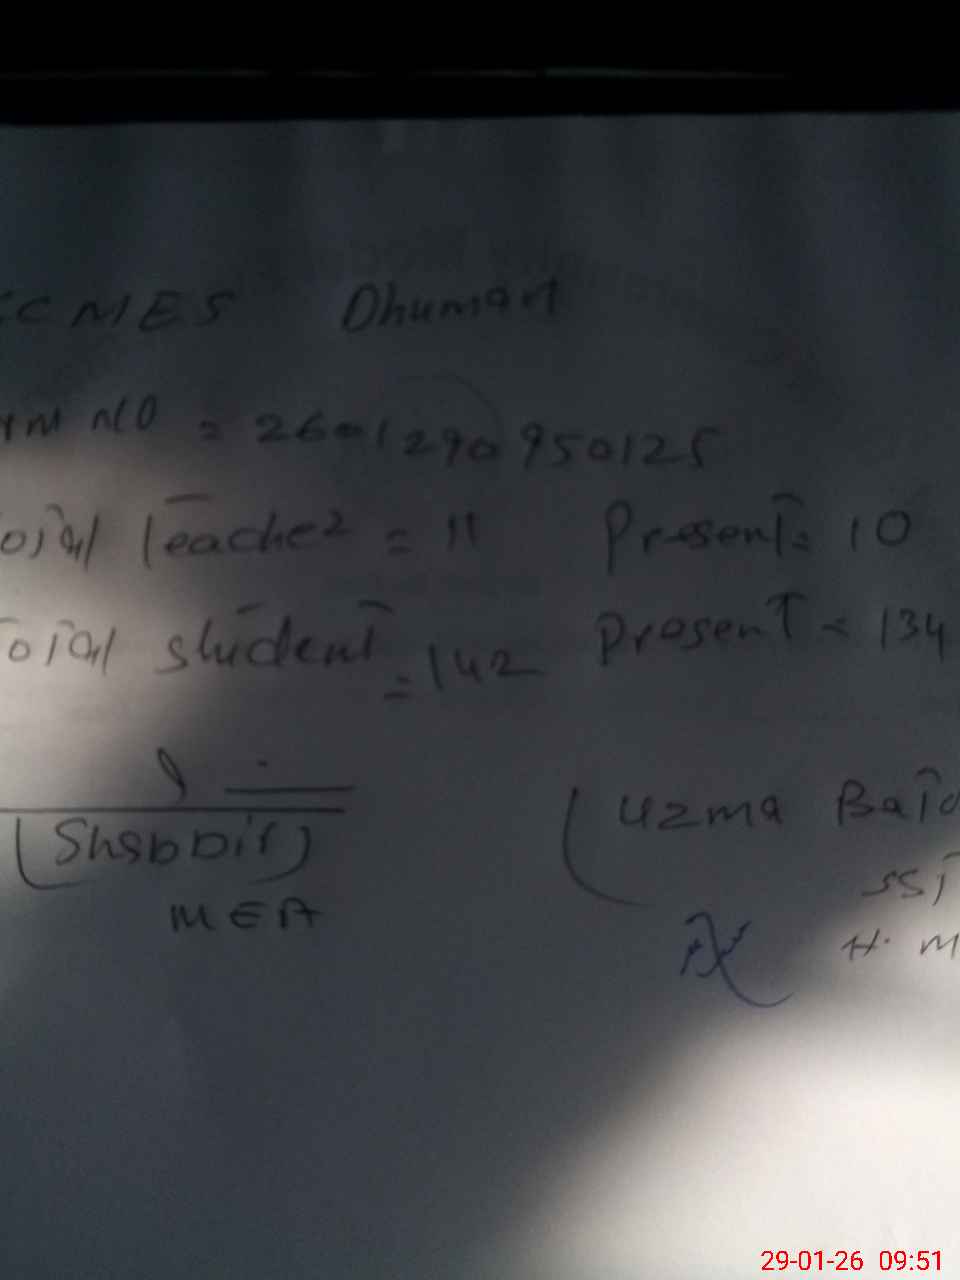 CMES Dhumart
NO = 2601290950125
Total Teacher = 11 Present = 10
Total student = 142 Present = 134
(Shabbir) (Uzma
MEA SST
H. M
29-01-26 09:51